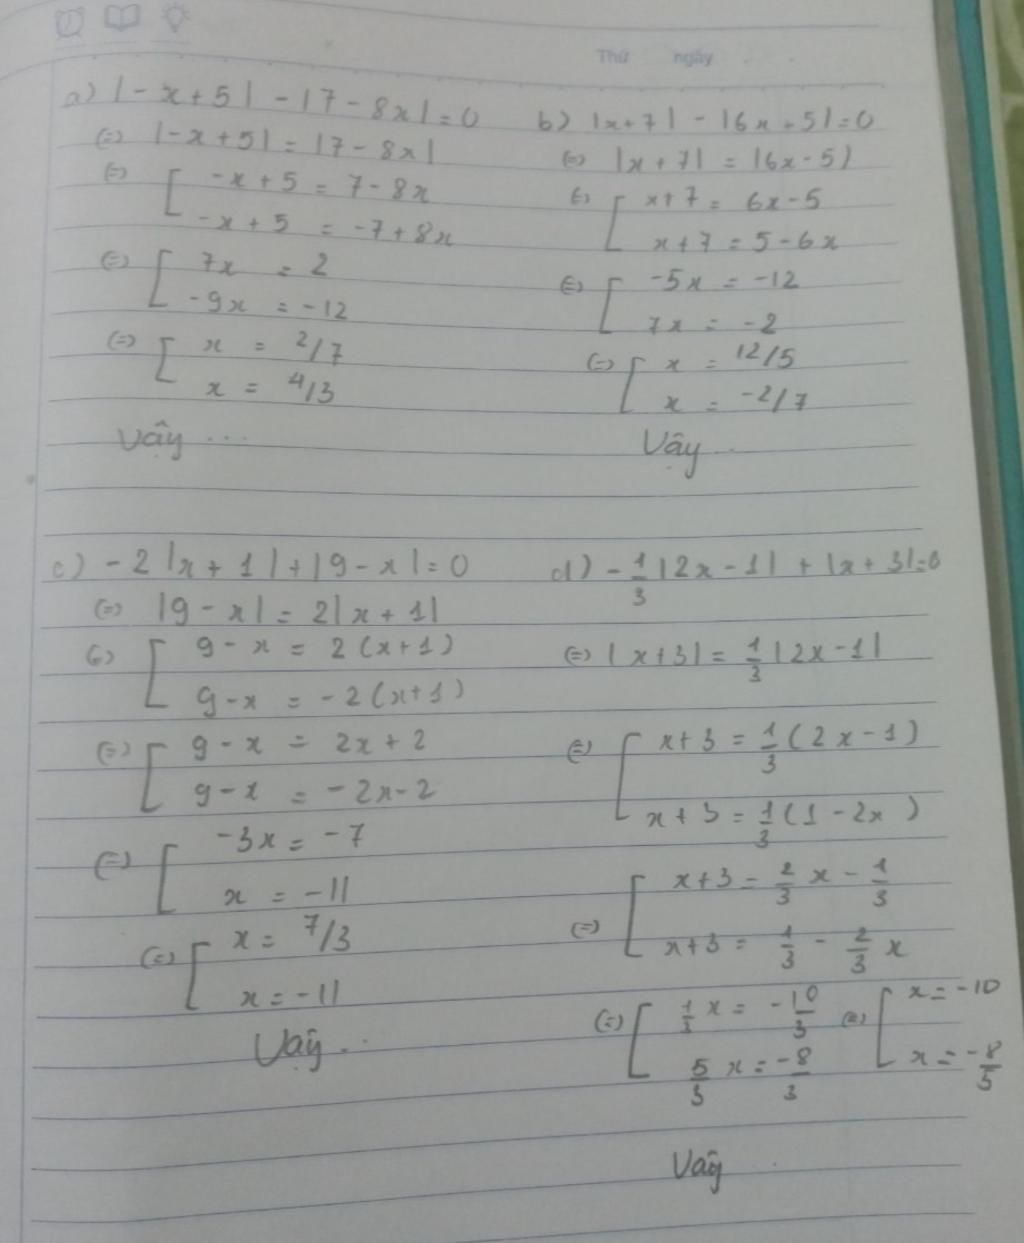 Thứ ngày
a) |-x+5| - |7-8x| = 0
(=) |-x+5| = |7-8x|
(=) [ -x+5 = 7-8x
-x+5 = -7+8x
(=) [ 7x = 2
-9x = -12
(=) [ x = 2/7
x = 4/3
Vậy ...
b) |x+7| - |6x-5| = 0
(=) |x+7| = |6x-5|
(=) [ x+7 = 6x-5
x+7 = 5-6x
(=) [ -5x = -12
7x = -2
(=) [ x = 12/5
x = -2/7
Vậy ...
c) -2|x+1| + |9-x| = 0
(=) |9-x| = 2|x+1|
(=) [ 9-x = 2(x+1)
9-x = -2(x+1)
(=) [ 9-x = 2x+2
9-x = -2x-2
(=) [ -3x = -7
x = -11
(=) [ x = 7/3
x = -11
Vậy ...
d) -1/3|2x-1| + |x+3| = 0
(=) |x+3| = 1/3|2x-1|
(=) [ x+3 = 1/3(2x-1)
x+3 = 1/3(1-2x)
(=) [ x+3 = 2/3 x - 1/3
x+3 = 1/3 - 2/3 x
(=) [ 1/3 x = -10/3 (=) [ x = -10
5/3 x = -8/3 x = -8/5
Vậy